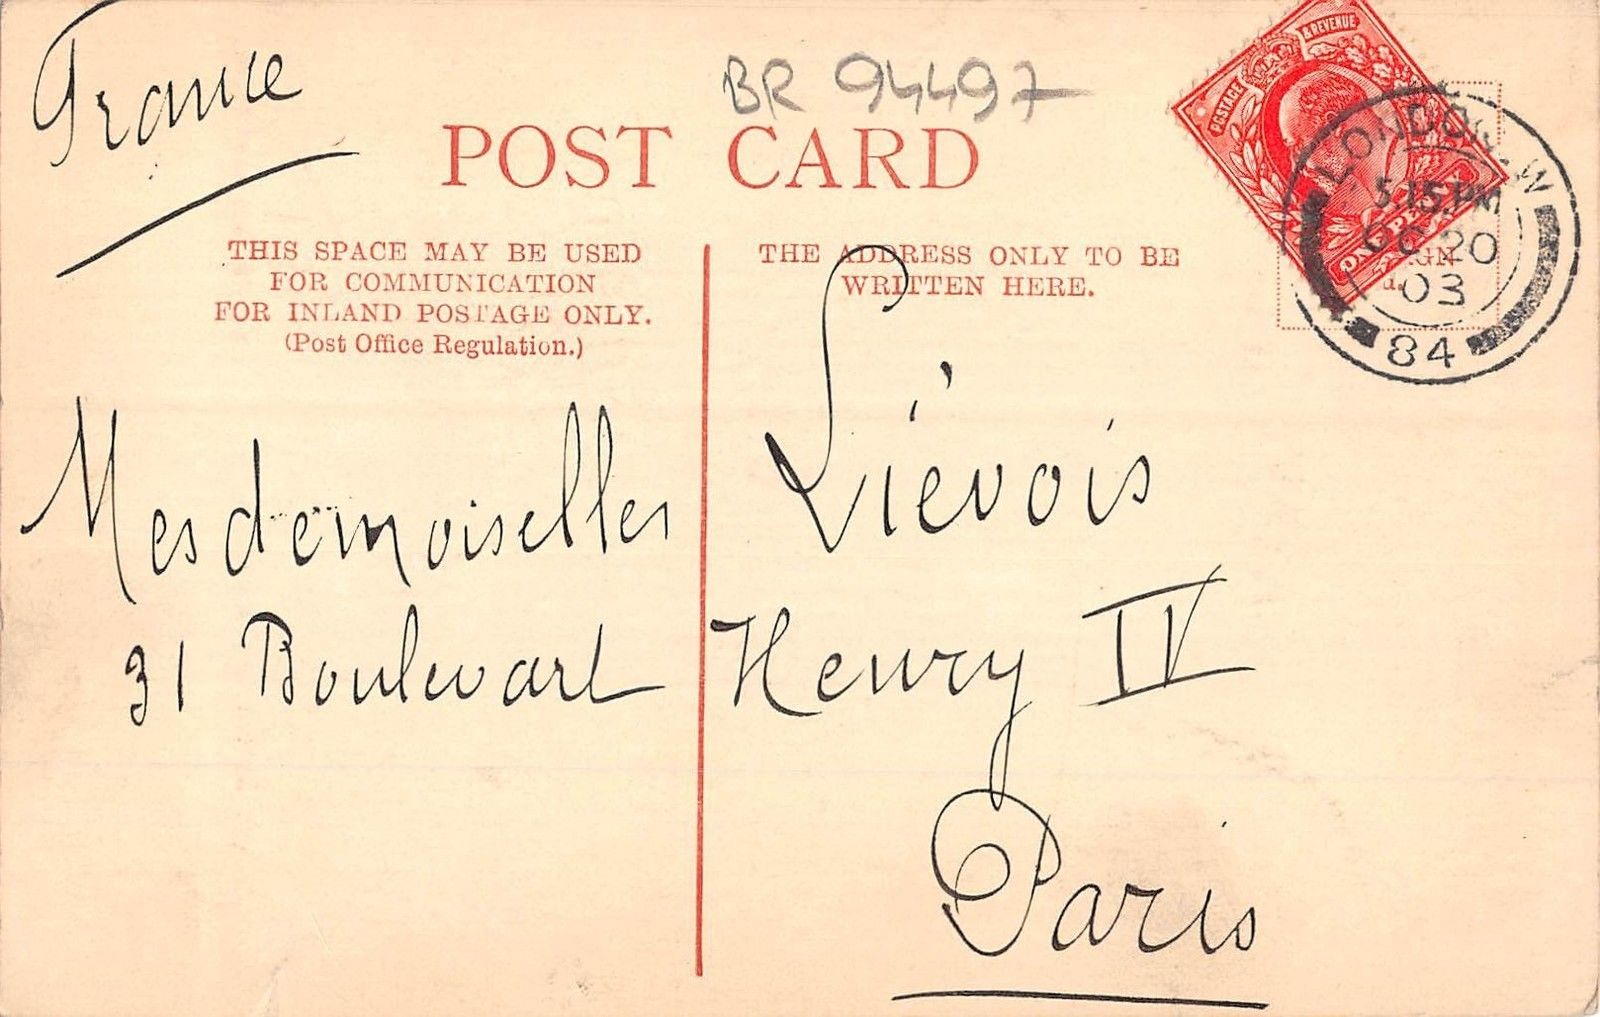 France
BR 94497
POST CARD
POSTAGE & REVENUE
ONE PENNY
LONDON. W
5.15.PM
OC 20
03
84
THIS SPACE MAY BE USED
FOR COMMUNICATION
FOR INLAND POSTAGE ONLY.
(Post Office Regulation.)
THE ADDRESS ONLY TO BE
WRITTEN HERE.
Mesdemoiselles Liévois
31 Boulevart Henry IV
Paris